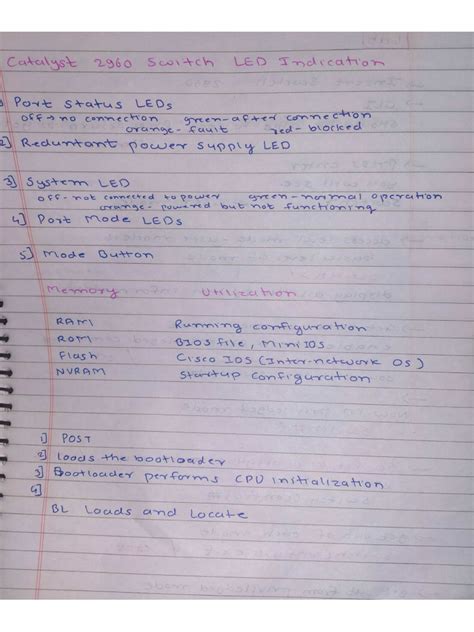 Catalyst 2960 Switch LED Indication
Port Status LEDs
off → no connection green-after connection
orange- fault red- blocked
2] Reduntant power supply LED
3] System LED
off - not connected to power green-normal operation
orange- powered but not functioning
4] Port Mode LEDs
5] Mode Button
Memory Utilization
RAM Running configuration
ROM BIOS file, Mini IOS
Flash Cisco IOS (Inter-network OS)
NVRAM Startup configuration
1] POST
2] Loads the bootloader
3] Bootloader performs CPU initialization
4]
BL Loads and Locate